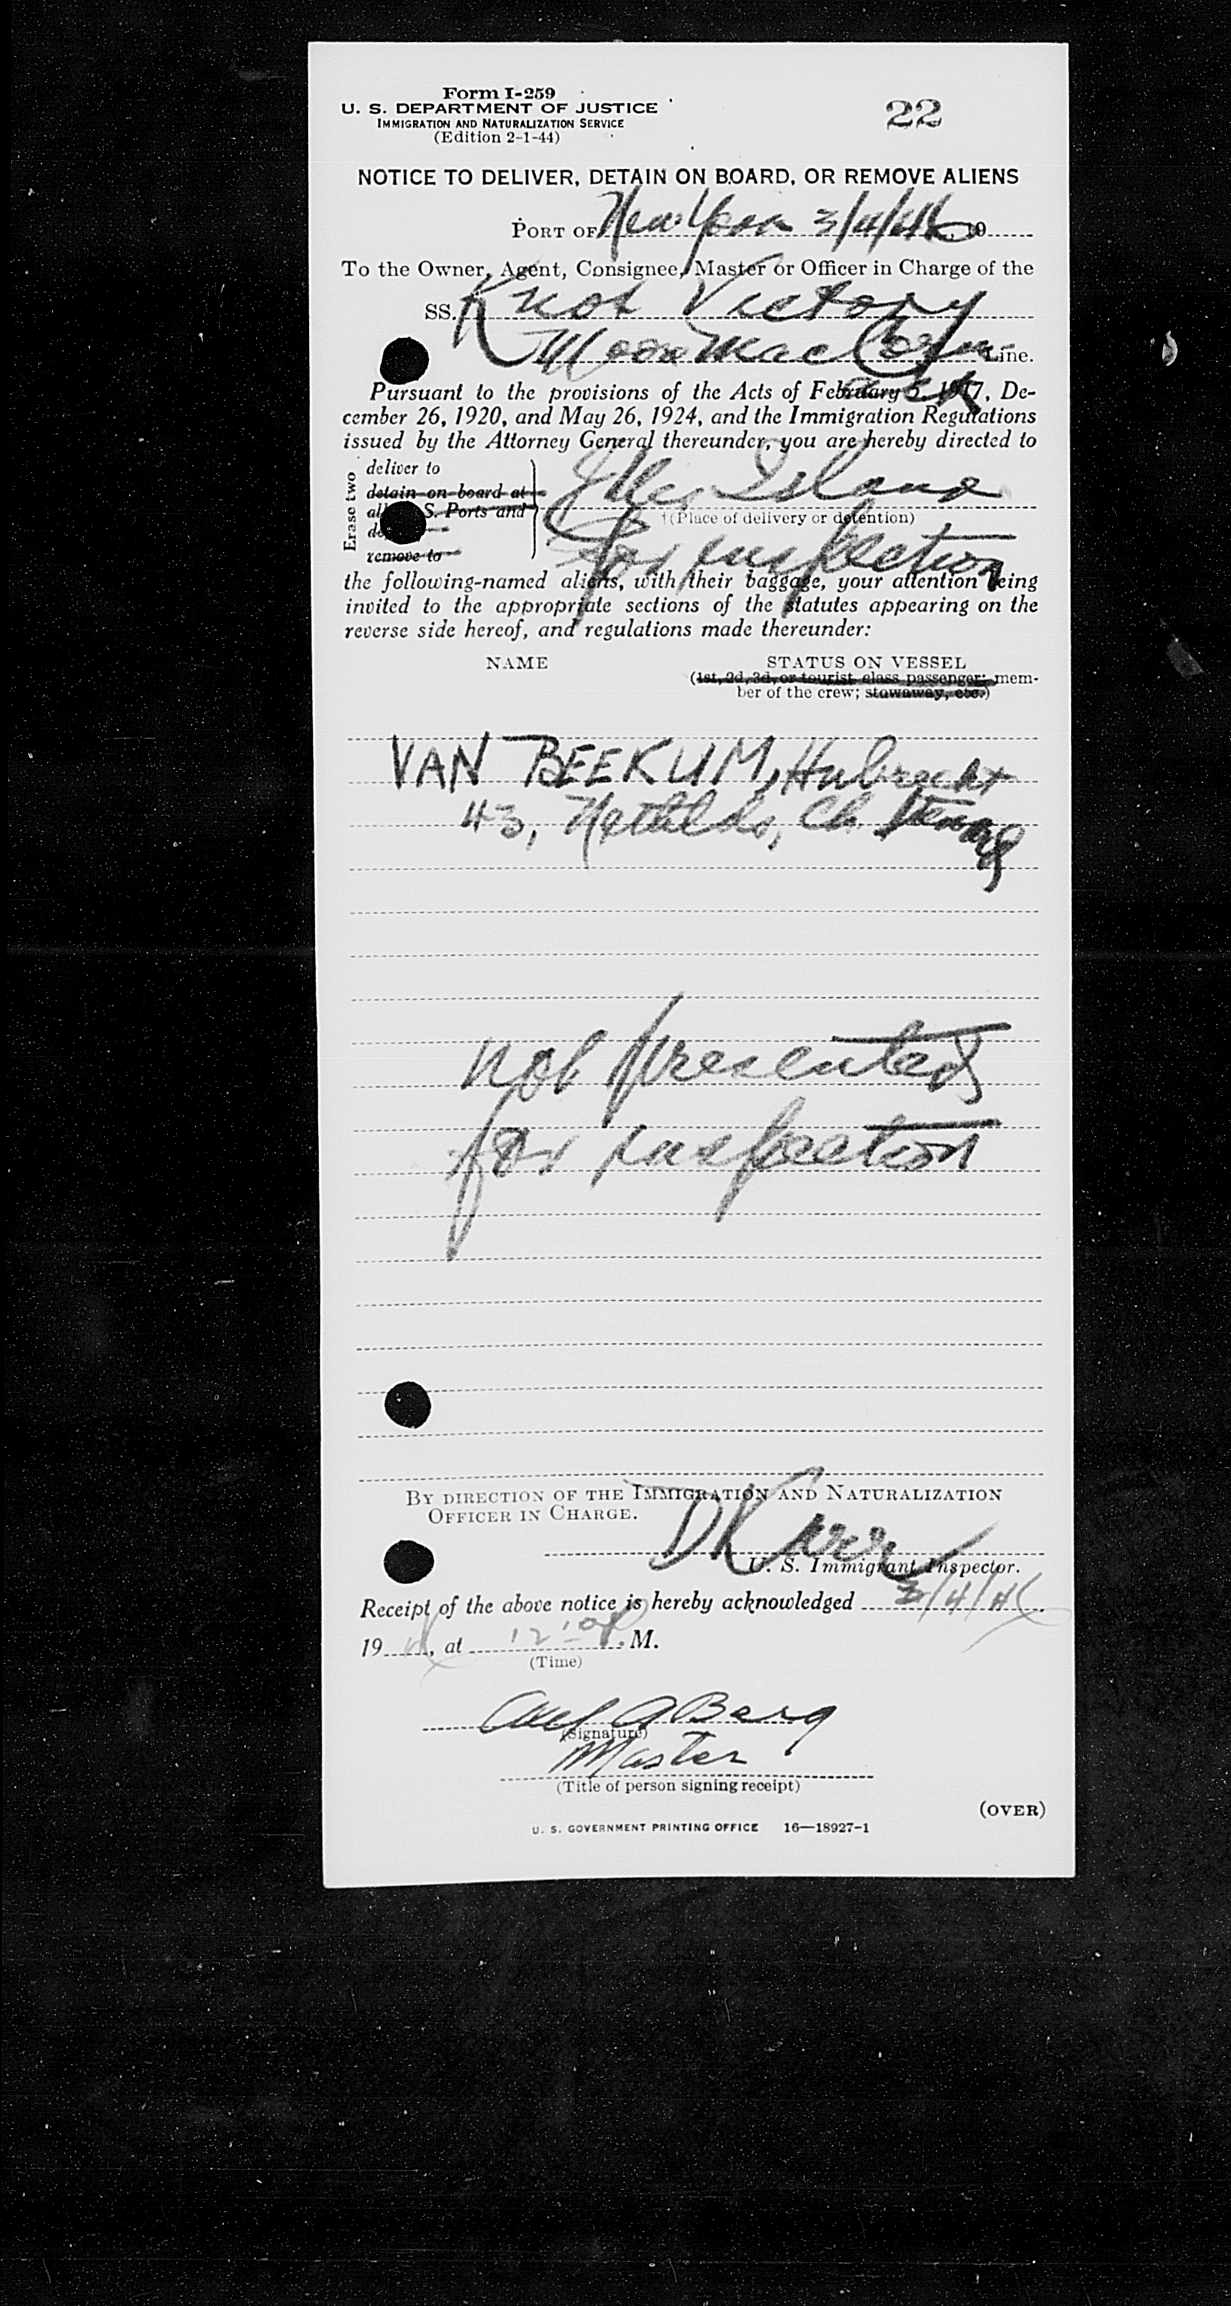 Form I-259
U. S. DEPARTMENT OF JUSTICE
IMMIGRATION AND NATURALIZATION SERVICE
(Edition 2-1-44)
22
NOTICE TO DELIVER, DETAIN ON BOARD, OR REMOVE ALIENS
PORT OF New York 3/4/46, 19
To the Owner, Agent, Consignee, Master or Officer in Charge of the
SS. Knot Victory
Moor MacCorm Line.
ack
Pursuant to the provisions of the Acts of February 5, 1917, De-
cember 26, 1920, and May 26, 1924, and the Immigration Regulations
issued by the Attorney General thereunder, you are hereby directed to
Erase two
deliver to
detain on board at
all U. S. Ports and
remove to
Ellis Island
†(Place of delivery or detention)
for inspection
the following-named aliens, with their baggage, your attention being
invited to the appropriate sections of the statutes appearing on the
reverse side hereof, and regulations made thereunder:
NAME
STATUS ON VESSEL
(1st, 2d, 3d, or tourist class passenger; mem-
ber of the crew; stowaway, etc.)
VAN BEEKUM, Hubrecht
43, Nethlds, Ch.
not presented
for inspection
BY DIRECTION OF THE IMMIGRATION AND NATURALIZATION
OFFICER IN CHARGE.
D Karr
U. S. Immigrant Inspector.
Receipt of the above notice is hereby acknowledged 3/4/46
19, at 12:- P. M.
(Time)
Axel A Berg
(Signature)
Master
(Title of person signing receipt)
(OVER)
U. S. GOVERNMENT PRINTING OFFICE 16—18927-1